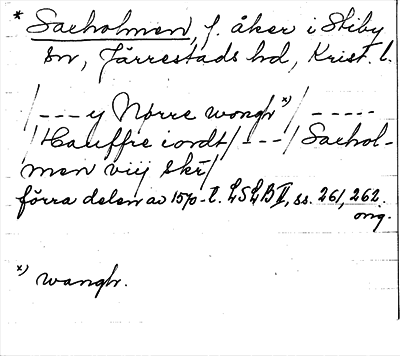 * Saeholmen, f. åker i Stiby
sn, Järrestads hd, Krist. l.
/ - - - y Nørre wongh x) / - - - - -
/ Hauffre iordt / - - - / Saehol-
men viij skr /
förra delen av 1570-t. LSLB II, ss. 261, 262.
orig.
x) wangh.